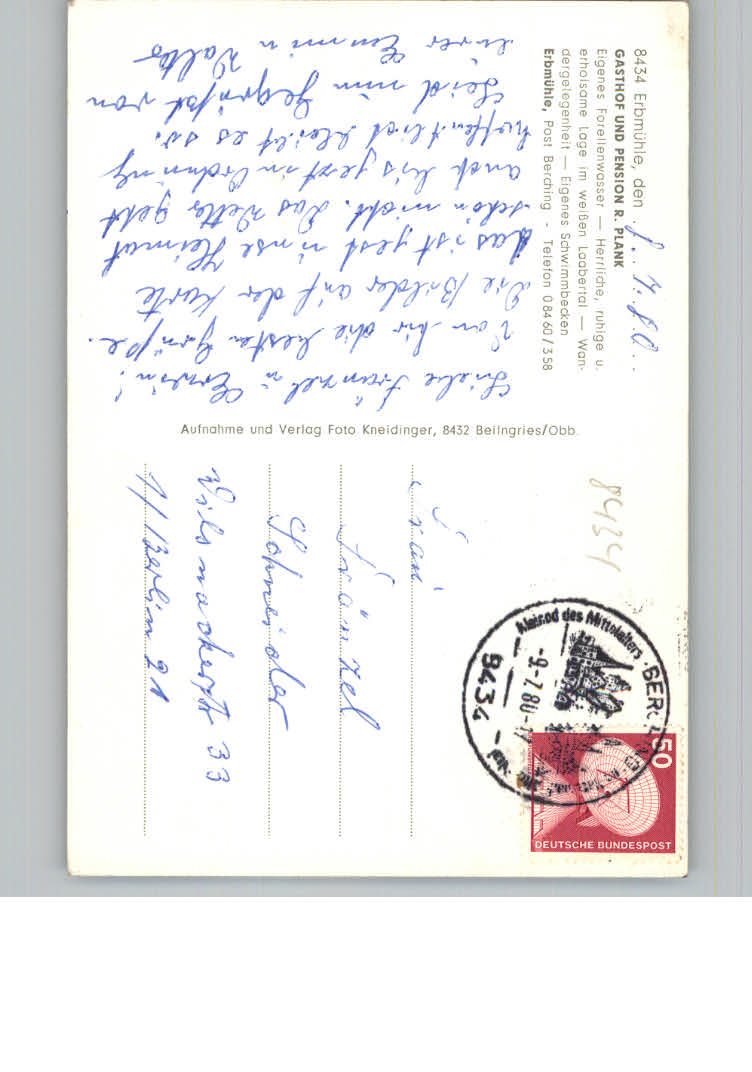 8434 Erbmühle, den 8.7.80.
GASTHOF UND PENSION R. PLANK
Eigenes Forellenwasser — Herrliche, ruhige u.
erholsame Lage im weißen Laabertal — Wan-
dergelegenheit — Eigenes Schwimmbecken
Erbmühle, Post Berching - Telefon 08460/358
Liebe Fränzel u Erwin!
Von hir die besten Grüße.
Die Bilder auf der Karte
das ist jest unse Heimat
schön nicht. Das Wetter geht
auch bis jezt in Ordnung
hoffentlich bleibt es so.
Seid nun gegrüßt von
eurer Emmi u Walter
Aufnahme und Verlag Foto Kneidinger, 8432 Beilngries/Obb.
8434
Frau
Fränzel
Schneider
Wilsnackerstr 33
1/Berlin 21
Kleinod des Mittelalters
BERCHING
-9.-7.80-17
8434
50
DEUTSCHE BUNDESPOST